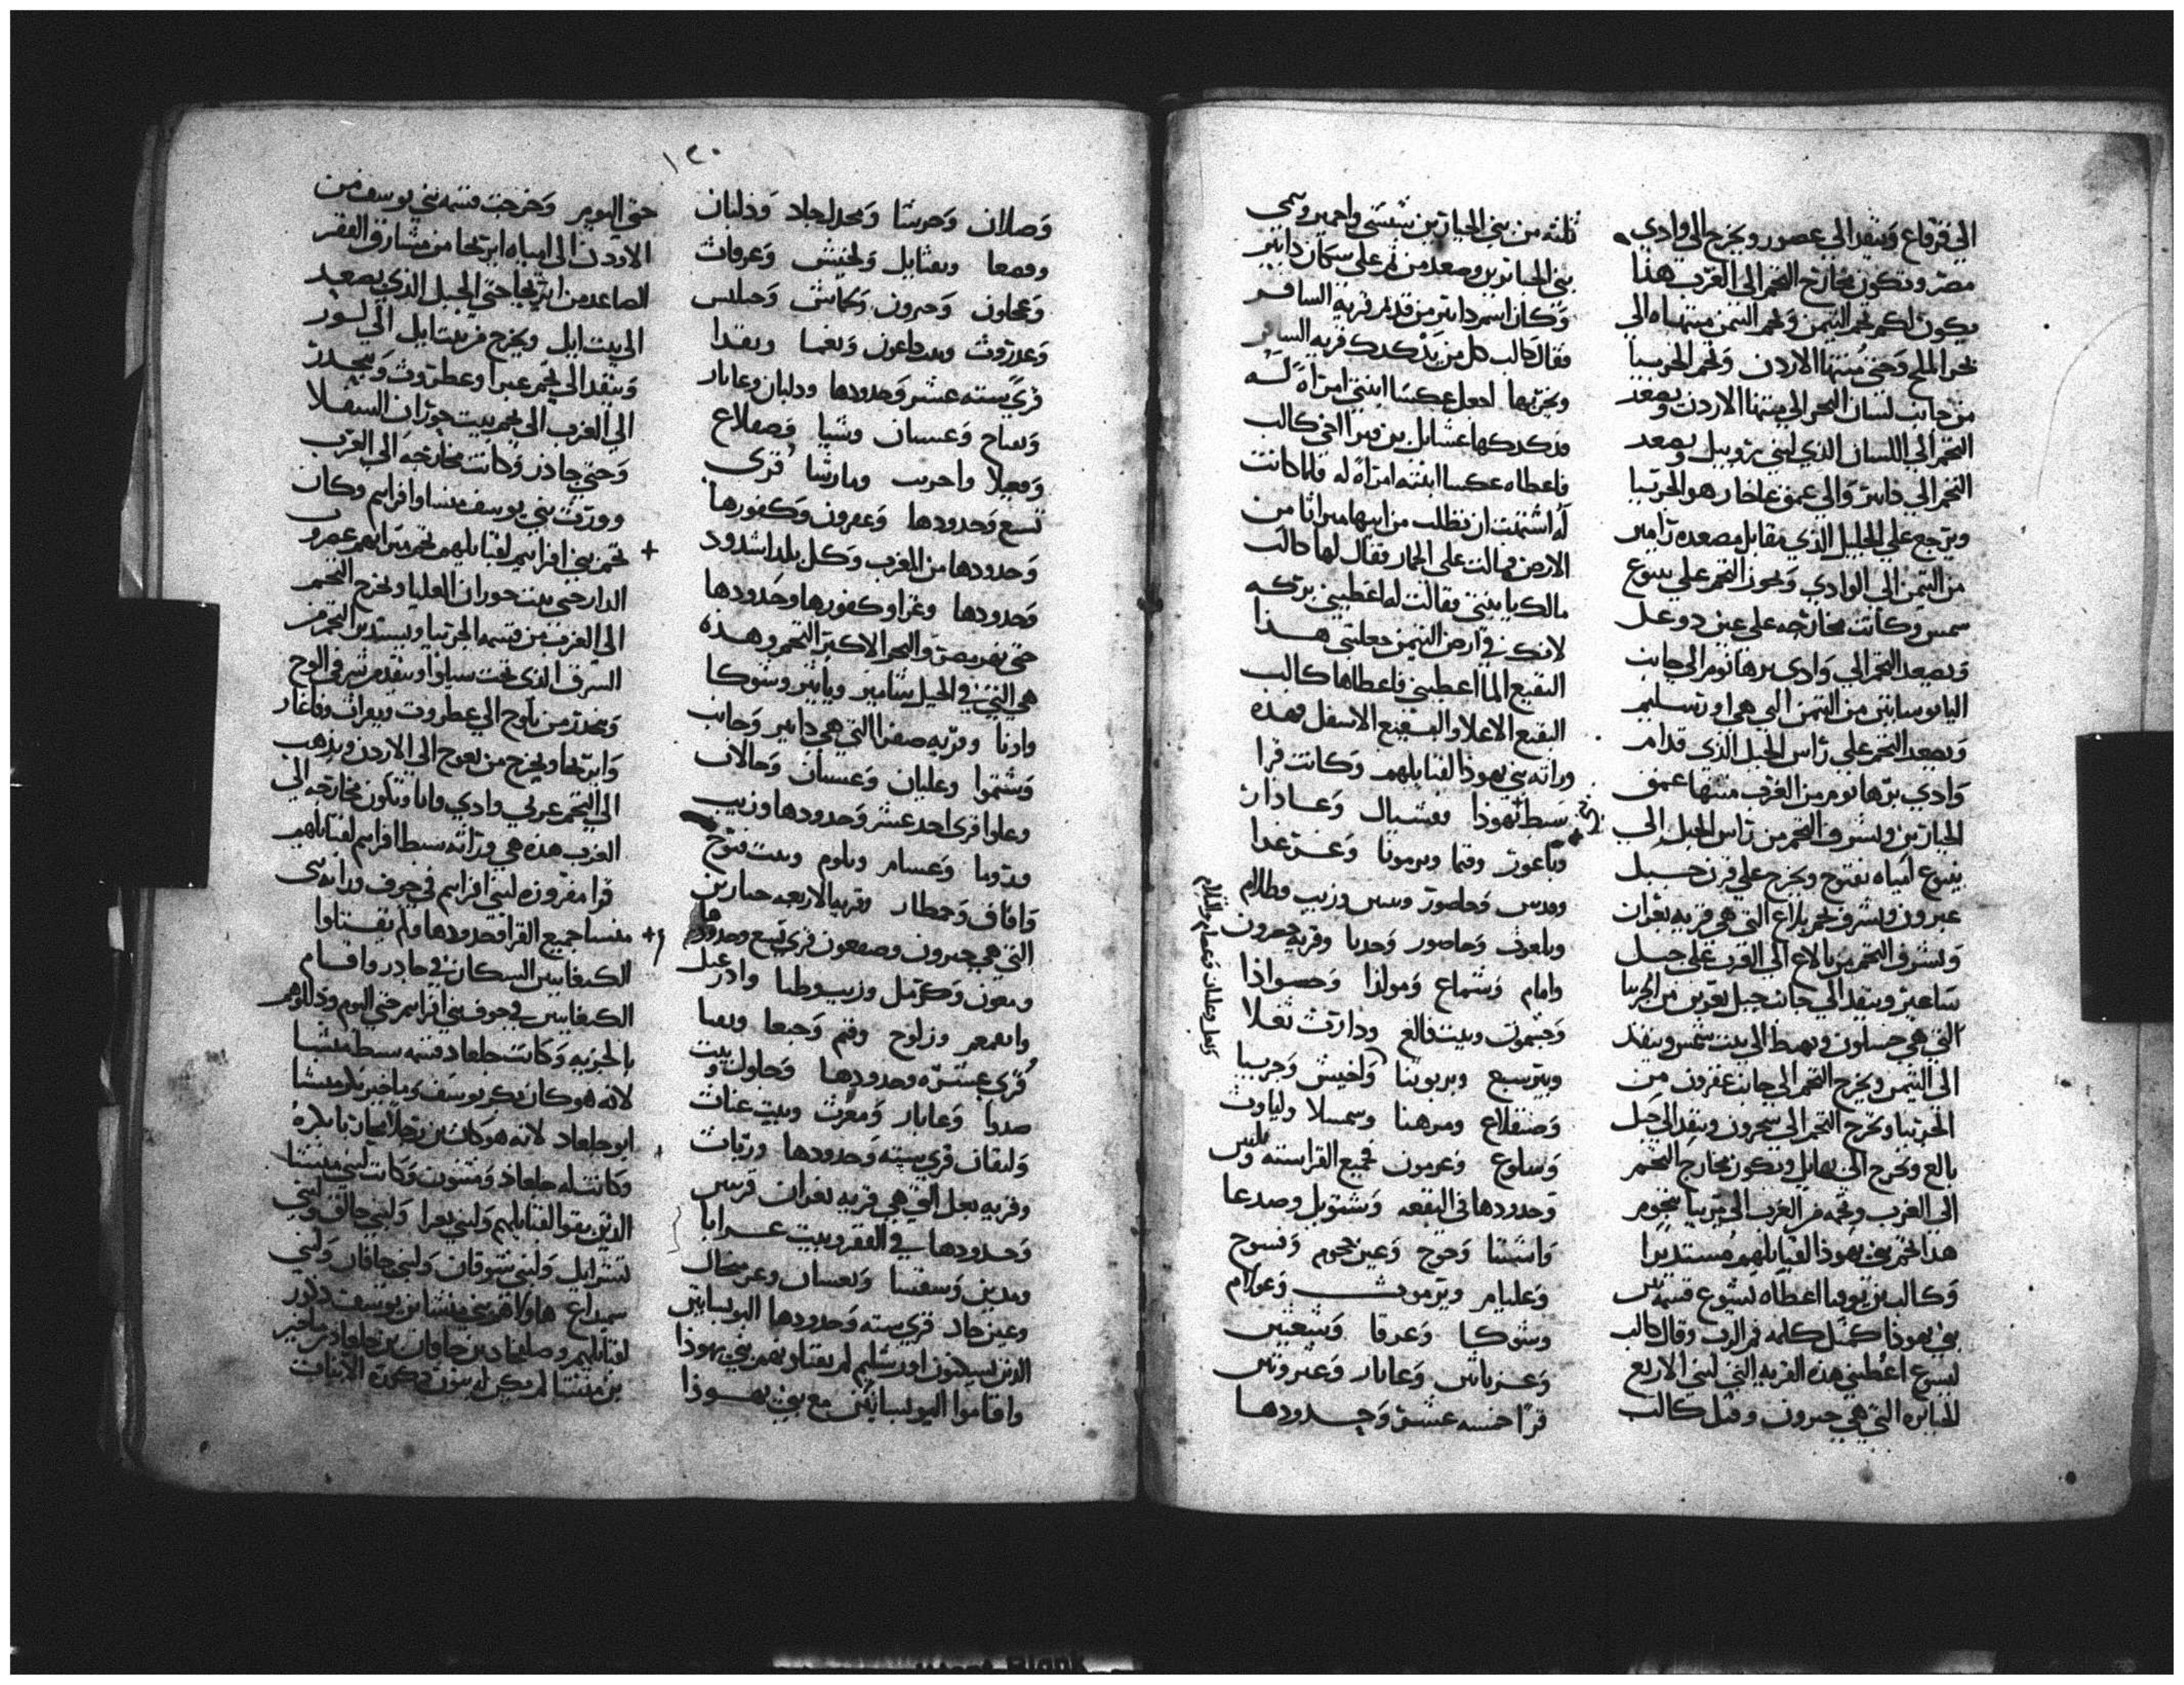 الي قرقاع وينفد الي عصور ويخرج الي وادي
مصر وتكون مخارج التخم الي الغرب هذا
يكون لكم تخم التيمن وتخم التيمن منتهاه الي
بحر الملح وحتي منتها الاردن وتخم الجربيا
من جانب لسان البحر الي منتها الاردن ويصعد
التخم الي اللسان الذي لبني روبيل ويصعد
التخم الي دابير والي عمق عاخار هو الجربيا
ويرجع علي الجليل الذي مقابل مصعده رامير
من التيمن الي الوادي ويجوز التخم علي ينبوع
سمس وكانت مخارجه علي عين دوعل
ويصعد التخم الي وادي برهانوم الي جانب
اليابوسانين من التيمن التي هي اورتسليم
ويصعد التخم علي راس الجبل الذي قدام
وادي برهانوم من الغرب منتها عمق
الجبارين ويشرف التخم من راس الجبل الي
ينبوع امياه نفتوح ويخرج علي قرن جبل
عبرون ويشرف تخم بلاع التي هي قريه يعران
ويشرف التخم من بالاع الي الغرب علي جبل
ساعير وينفد الي جانب جبل يعرين من الجربيا
التي هي حسلون ويهبط الي بيت شمس وينفد
الي التيمن ويخرج التخم الي جانب عفرون من
الجربيا ويخرج التخم الي سحرون وينفد الي جبل
بالع ويخرج الي نهايل ويكون مخارج التخم
الي الغرب وتخمه من الغرب الي جربيا بتخوم
هدا تخم بني يهوذا لقبايلهم مستديرا
وكالب بن يوفيا اعطاه يشوع قسمه من
بني يهوذا كمثل كلمه فم الرب وقال كالب
ليسوع اعطيني هذه القريه التي لبني الاربع
الجبابره التي هي حبرون وقتل كالب
ثلثه من بني الجبارين شيشي واحمير وسمي
بني الجبابرين وصعد من ثم علي سكان دابير
وكان اسم دابير من قديم قرية السافر
فقال كالب كل من يدكدك قريه السافر
ويخربها اجعل عكسا ابنتي امراة له
فدكدكها عشايل بن قيرا اخي كالب
فاعطاه عكسا ابنته امراة له فلما كانت
له اشتهت ان تطلب من ابيها ميراثا من
الارض فمالت علي الحمار فقال لها كالب
مالك يا بنتي فقالت له اعطيني بركه
لانك في ارض التيمن جعلتني هذا
البقيع الما اعطيني فاعطاها كالب
البقيع الاعلا والبقيع الاسفل فهذه
وراثه بني يهوذا لقبايلهم وكانت قرا
سبط يهوذا فقشيال وعادار
وباعور وقما وبرمونا وعزعدا
وقدس وحاصور وسس وزيب وطلام
وبلعوث وحاصور وحدتا وقريه حصرون
وامام وشماع ومولذا وحسواذا
وحشمون وبيت فالغ ودارث نعلا
وبيرسبع وبربوبنا واخيش وجربيا
وصنقلاع ومرهنا وسمسلا ولباوث
وسلوع وعرمون فجميع القرا سته وثلثين
وحدودها في البقعه وشتويل وصدعا
واشنتا وحوج وعين حجوم وفسوح
وعليام ويرموث وعدلام
وشوكا وعرقا وشبعين
وعزباثين وعابار وعبروتين
قرا خمسه عشر وحدودها
وبعل وعلمان وعصام والثلام
١٢٠
وصلان وحرشا ومجدلجاد ودلبان
وقصعا وبقتايل ولخيش وعرفات
وعجلون وحبرون وكماش وحملس
وعدروث وبيت داعون ونعما وبقدا
قري سته عشر وحدودها ودلبان وعابار
وبساح وعسسان وشبا وصقلاع
وقعيلا واحرب ومارشا قري
تسع وحدودها وعفرون وكفورها
وحدودها من الغرب وكل بلد اشدود
وحدودها وغزا وكفورها وحدودها
حتي نهر مصر والبحر الاكبر التخم وهذه
هي التي في الجبل شامير وياتير وشوكا
وادنا وقريه صفرا التي هي دابير وحانب
وشتموا وعليان وعسنان وحالان
وعلوا قري احد عشر وحدودها وزيب
ودوما وعسام وبلوم وبيت فتوح
وافاف وحمطار وقريه الاربعه جبارين
التي هي حبرون وصفعون قري تسع وحدودها
ومعون وكرمل وزيب وطا وادرعيل
وانعمعر وزلوح وقم وجبعا وتمنا
قري عشره وحدودها وحلول وبيت
صدوا وعابار ومعرث وبيت عناث
ولتقان قري سته وحدودها وربات
وقريه بعل التي هي قريه يعران قرتين
وحدودها في القفر وبيت عرابا
ومدين وسفسا ونعسان وعرمحال
وعين جاد قري سته وحدودها اليوبسانين
الدين يسكنون اورشليم لم يقتلوهم بني يهوذا
واقاموا اليوبسانين مع بني يهوذا
حتي اليوم وخرجت قسمه بني يوسف من
الاردن الي امياه ايريحا من مشارق القفر
الصاعد من ايريحا حتي الجبل الذي يصعد
الي بيت ايل ويخرج من بيت ايل الي لوز
وينفد الي تخم عبرا وعطروث وينحدر
الي الغرب الي تخم بيت حوران السفلا
وحتي جادر وكانت مخارجه الي الغرب
وورث بني يوسف منسا وافرايم وكان
تخم بني افرايم لقبايلهم تخم ميراثهم عصرو
الدار حتي بيت حوران العليا ويخرج التخم
الي الغرب من قسمه الجربيا ويستدير التخم من
الشرق الذي تحت سيلوا وينفد من شرقي الوح
وينحدر من ياوح الي عطروت ويعراث وفاغار
وايريحا ويخرج من يعوج الي الاردن ويذهب
الي التخم عربي وادي قانا ويكون مخارجه الي
الغرب هذه هي وراثه سبط افرايم لقبايلهم
قرا مفروزه لبني افرايم في جوف وراثه بني
منسا جميع القرا وحدودها ولم يقتلوا
الكنعانين السكان في جادر واقام
الكنعانين في جوف بني افرايم حتي اليوم وذللوهم
بالجزيه وكانت جلعاد قسمه سبط منشا
لانه هو كان بكر يوسف وماخير بكر منشا
ابو جلعاد لانه هو كان رجلا محاربا بكره
وكانت له جلعاد ومتنون وكانت لبني منشا
الذين بقوا لقبايلهم ولبني يعرا ولبني حالق ولبني
تشرايل ولبني شوقان ولبني حافار ولبني
سميداع هاولاهم بني منشا بن يوسف دكور
لقبايلهم وصلفحاد بن حافان بن جلعاد بن ماخير
بن منشا لم يكن له بنون دكوره الا بنات